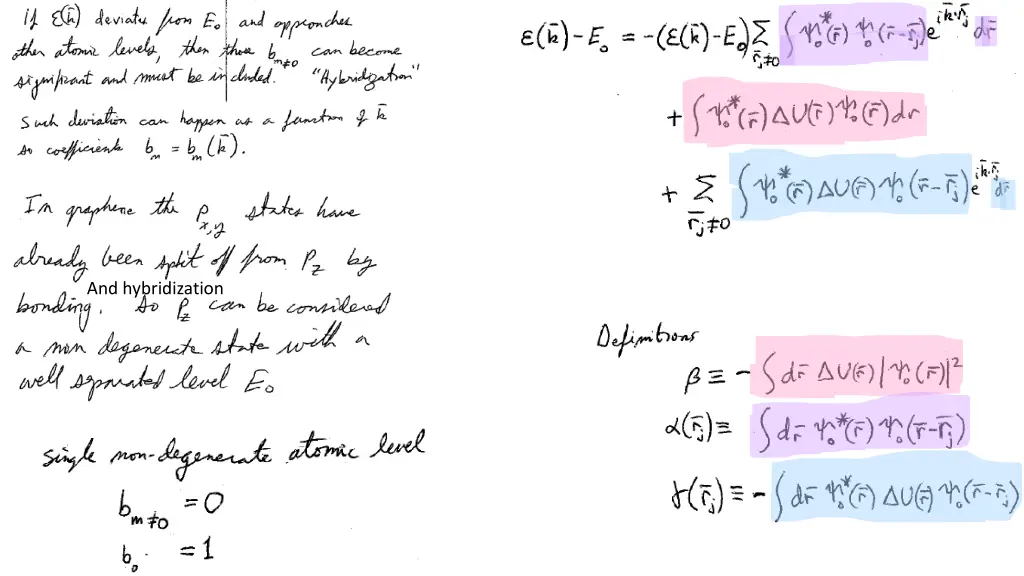 if ε(k̄) deviates from E₀ and approaches
other atomic levels, then those b_{m≠0} can become
significant and must be included. "Hybridization"
Such deviation can happen as a function of k̄
so coefficients b_m = b_m(k̄).
In graphene the P_{x,y} states have
already been split off from P_z by
And hybridization
bonding. So P_z can be considered
a non degenerate state with a
well separated level E₀
single non-degenerate atomic level
b_{m≠0} = 0
b₀ = 1
ε(k̄) - E₀ = -(ε(k̄) - E₀) Σ_{r̄_j≠0} ∫ψ₀*(r̄) ψ₀(r̄-r̄_j) e^{ik̄·r̄_j} dr̄
+ ∫ψ₀*(r̄) ΔU(r̄) ψ₀(r̄) dr
+ Σ_{r̄_j≠0} ∫ψ₀*(r̄) ΔU(r̄) ψ₀(r̄-r̄_j) e^{ik̄·r̄_j} dr̄
Definitions
β ≡ - ∫dr̄ ΔU(r̄) |ψ₀(r̄)|²
α(r̄_j) ≡ ∫dr̄ ψ₀*(r̄) ψ₀(r̄-r̄_j)
γ(r̄_j) ≡ - ∫dr̄ ψ₀*(r̄) ΔU(r̄) ψ₀(r̄-r̄_j)